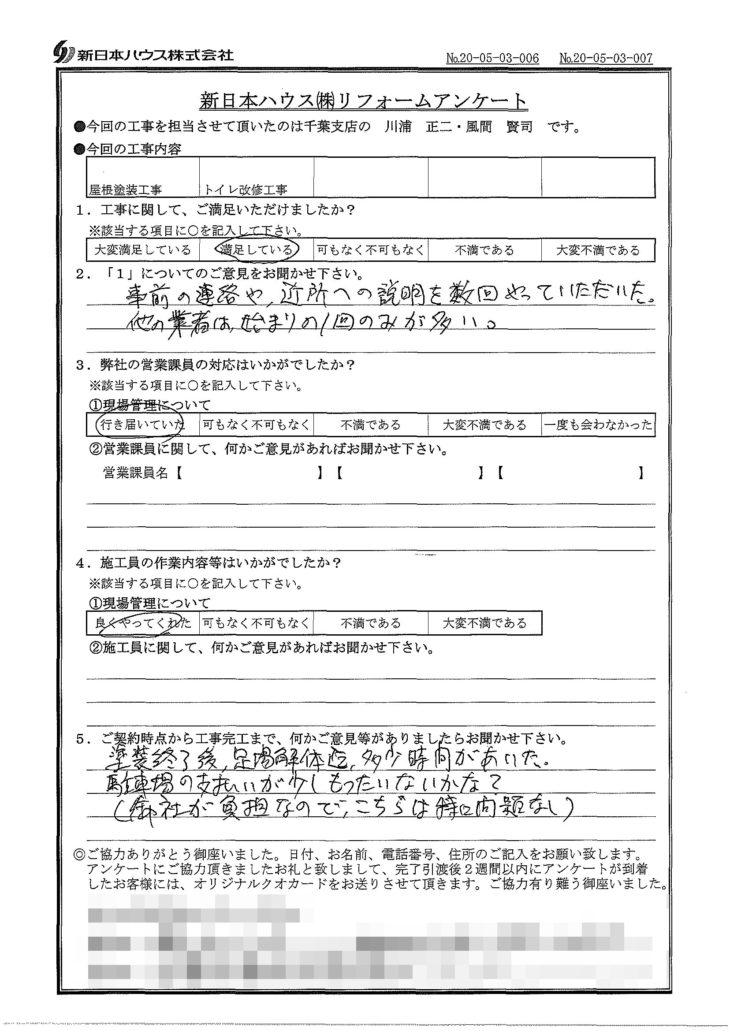 新日本ハウス株式会社
№20-05-03-006 №20-05-03-007
新日本ハウス㈱リフォームアンケート
●今回の工事を担当させて頂いたのは千葉支店の 川浦 正二・風間 賢司 です。
●今回の工事内容
屋根塗装工事 トイレ改修工事
1．工事に関して、ご満足いただけましたか？
※該当する項目に○を記入して下さい。
大変満足している 満足している 可もなく不可もなく 不満である 大変不満である
2．「1」についてのご意見をお聞かせ下さい。
事前の連絡や、近所への説明を数回やっていただいた。
他の業者は、始まりの1回のみが多い。
3．弊社の営業課員の対応はいかがでしたか？
※該当する項目に○を記入して下さい。
①現場管理について
行き届いていた 可もなく不可もなく 不満である 大変不満である 一度も会わなかった
②営業課員に関して、何かご意見があればお聞かせ下さい。
営業課員名【 】【 】【 】
4．施工員の作業内容等はいかがでしたか？
※該当する項目に○を記入して下さい。
①現場管理について
良くやってくれた 可もなく不可もなく 不満である 大変不満である
②施工員に関して、何かご意見があればお聞かせ下さい。
5．ご契約時点から工事完工まで、何かご意見等がありましたらお聞かせ下さい。
塗装終了後、足場解体迄、多少時間があいた。
駐車場の支払いが少しもったいないかな？
（御社が負担なので、こちらは特に問題なし）
◎ご協力ありがとう御座いました。日付、お名前、電話番号、住所のご記入をお願い致します。
アンケートにご協力頂きましたお礼と致しまして、完了引渡後2週間以内にアンケートが到着
したお客様には、オリジナルクオカードをお送りさせて頂きます。ご協力有り難う御座いました。